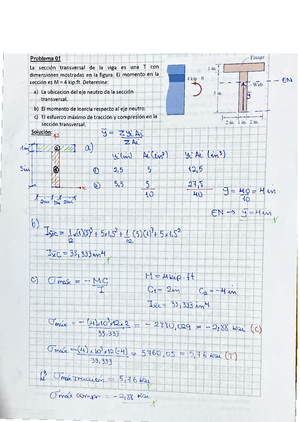 Problema 01
La sección transversal de la viga es una T con
dimensiones mostradas en la figura. El momento en la
sección es M = 4 kip·ft. Determine:
a) La ubicación del eje neutro de la sección
transversal.
b) El momento de inercia respecto al eje neutro.
c) El esfuerzo máximo de tracción y compresión en la
sección transversal.
Flange
1 in.
kip · ft
Web
EN
ȳ
2 in. 1 in. 2 in.
Solución:
ȳ = Σ yi Ai
Σ Ai
a)
1in
5in
2in 1in 2in
yi (in) Ai (in²) yi Ai (in³)
① 2,5 5 12,5
② 5,5 5 27,5
10 40
ȳ = 40 = 4 in
10
EN → ȳ = 4 in
b)
Ixc = 1 (1)(5)³ + 5×1,5² + 1 (5)(1)³ + 5×1,5²
12 12
Ixc = 33,333 in⁴
c) σmáx = - MC
I
M = 4 kip.ft
C₁ = 2 in C₂ = -4 in
Ixc = 33,333 in⁴
σmáx = -(4)×10³×12×2 = -2880,029 = -2,88 ksi (C)
33,333
σmáx = -(4)×10³×12(-4) = 5760,05 = 5,76 ksi (T)
33,333
σmáx tracción = 5,76 ksi
σmáx compr = -2,88 ksi